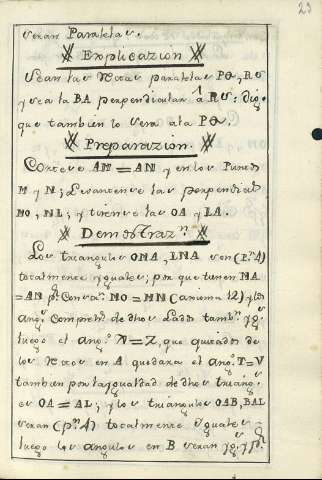 23
seran Paralelas.
Explicazion
Sean las Rectas paralelas PQ, RS
y sea la BA perpendicular à RS: digo
que tambien lo sera ala PQ.
Preparazion.
Cortese AM = AN y en los Puntos
M y N; Levantense las perpendicul
MO, NL; y tirense las OA y LA.
Demostraz.n
Los triangulos OMA, LNA son (p.r A)
totalmente yguales; por que tienen MA
= AN p.r Constr. MO = MN (axioma 12) y los
ang.s Comprehds. de dhos Lados tamb.n yg.s
luego el ang.o N = Z, que quitados de
los Rectos en A quedara el ang.o T = V
tambien por la ygualdad de dhos triang.s
es OA = AL; y los triangulos OAB, BAL
seran (p.r A) totalmente yguales
luego los angulos en B seran yg.s, y p.r